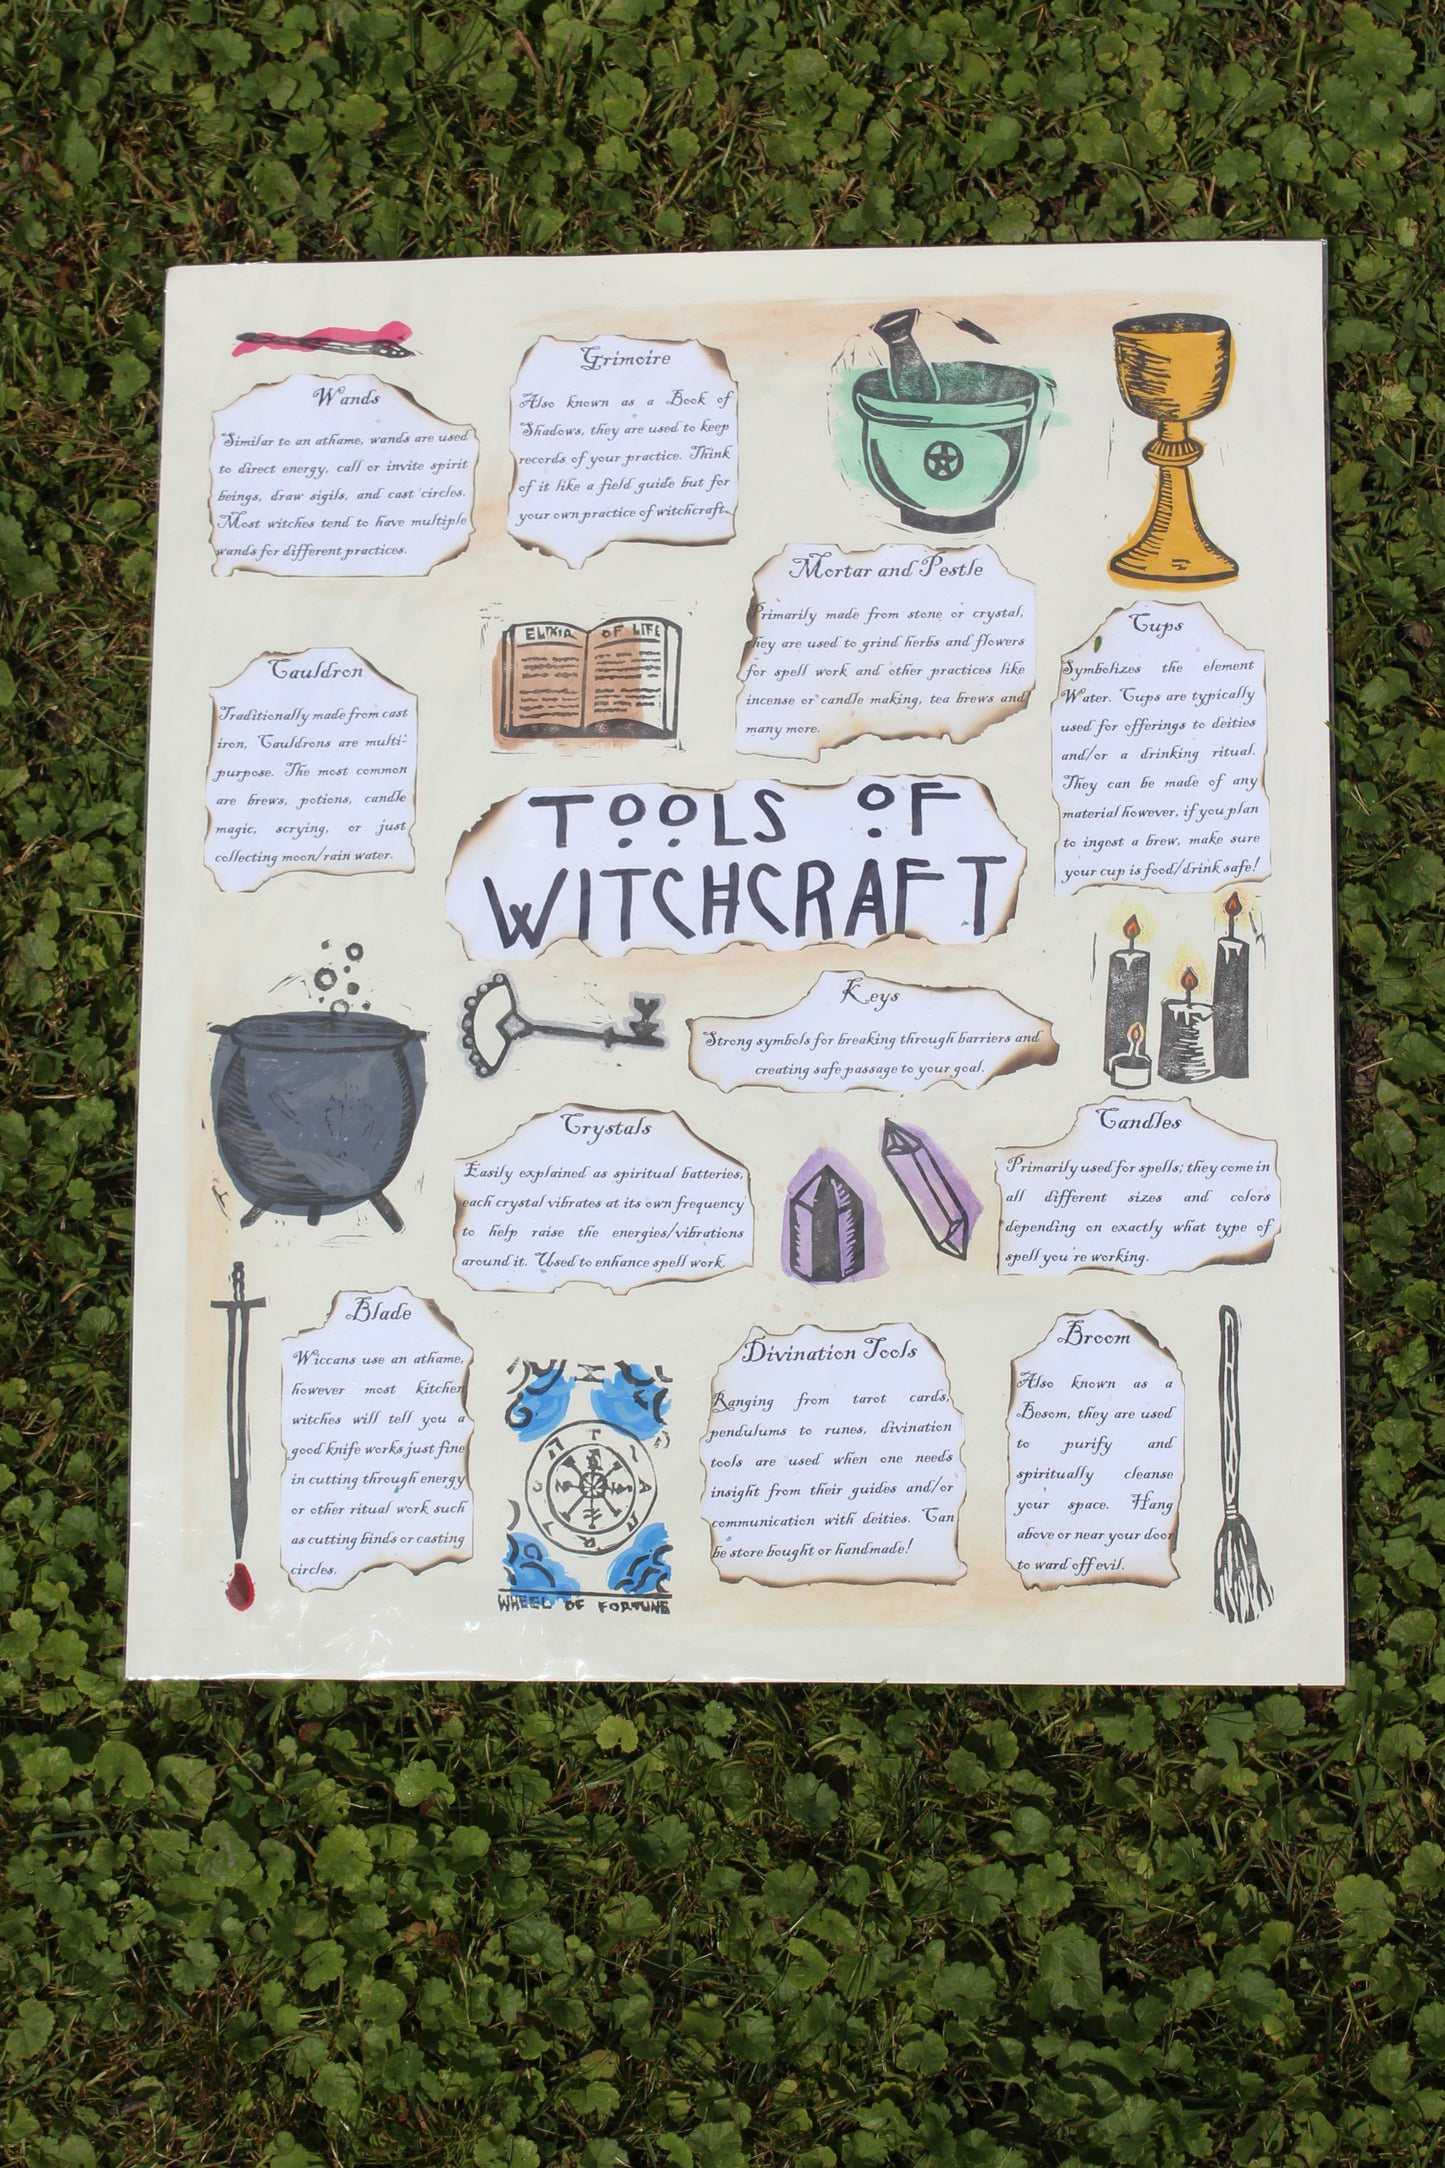 Wands
Similar to an athame, wands are used
to direct energy, call or invite spirit
beings, draw sigils, and cast circles.
Most witches tend to have multiple
wands for different practices.
Grimoire
Also known as a Book of
Shadows, they are used to keep
records of your practice. Think
of it like a field guide but for
your own practice of witchcraft.
Mortar and Pestle
Primarily made from stone or crystal,
they are used to grind herbs and flowers
for spell work and other practices like
incense or candle making, tea brews and
many more.
Cups
Symbolizes the element
Water. Cups are typically
used for offerings to deities
and/or a drinking ritual.
They can be made of any
material however, if you plan
to ingest a brew, make sure
your cup is food/drink safe!
ELIXIR OF LIFE
Cauldron
Traditionally made from cast
iron, Cauldrons are multi-
purpose. The most common
are brews, potions, candle
magic, scrying, or just
collecting moon/rain water.
TOOLS OF
WITCHCRAFT
Keys
Strong symbols for breaking through barriers and
creating safe passage to your goal.
Crystals
Easily explained as spiritual batteries,
each crystal vibrates at its own frequency
to help raise the energies/vibrations
around it. Used to enhance spell work.
Candles
Primarily used for spells; they come in
all different sizes and colors
depending on exactly what type of
spell you're working.
Blade
Wiccans use an athame,
however most kitchen
witches will tell you a
good knife works just fine
in cutting through energy
or other ritual work such
as cutting binds or casting
circles.
WHEEL OF FORTUNE
Divination Tools
Ranging from tarot cards,
pendulums to runes, divination
tools are used when one needs
insight from their guides and/or
communication with deities. Can
be store bought or handmade!
Broom
Also known as a
Besom, they are used
to purify and
spiritually cleanse
your space. Hang
above or near your door
to ward off evil.